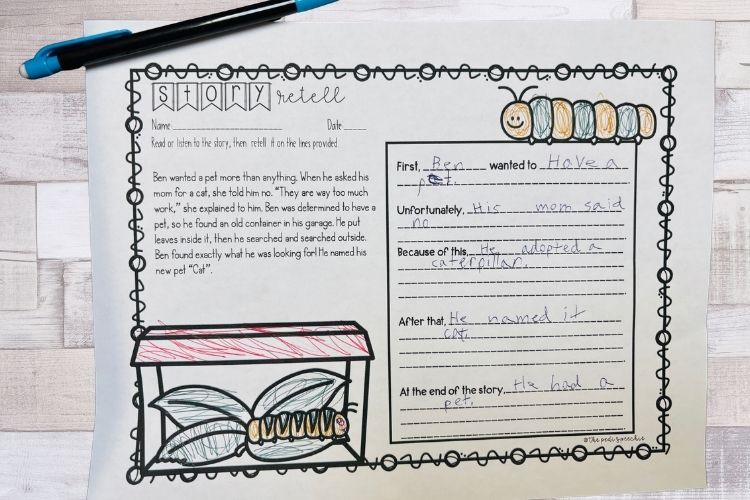 STORY retell
Name
Date
Read or listen to the story, then retell it on the lines provided.
Ben wanted a pet more than anything. When he asked his
mom for a cat, she told him no. "They are way too much
work," she explained to him. Ben was determined to have a
pet, so he found an old container in his garage. He put
leaves inside it, then he searched and searched outside.
Ben found exactly what he was looking for! He named his
new pet "Cat".
First, Ben wanted to Have a
pet.
Unfortunately, His mom said
no
Because of this, He adopted a
caterpillar.
After that, He named it
cat.
At the end of the story, He had a
pet.
@thepedispeechie